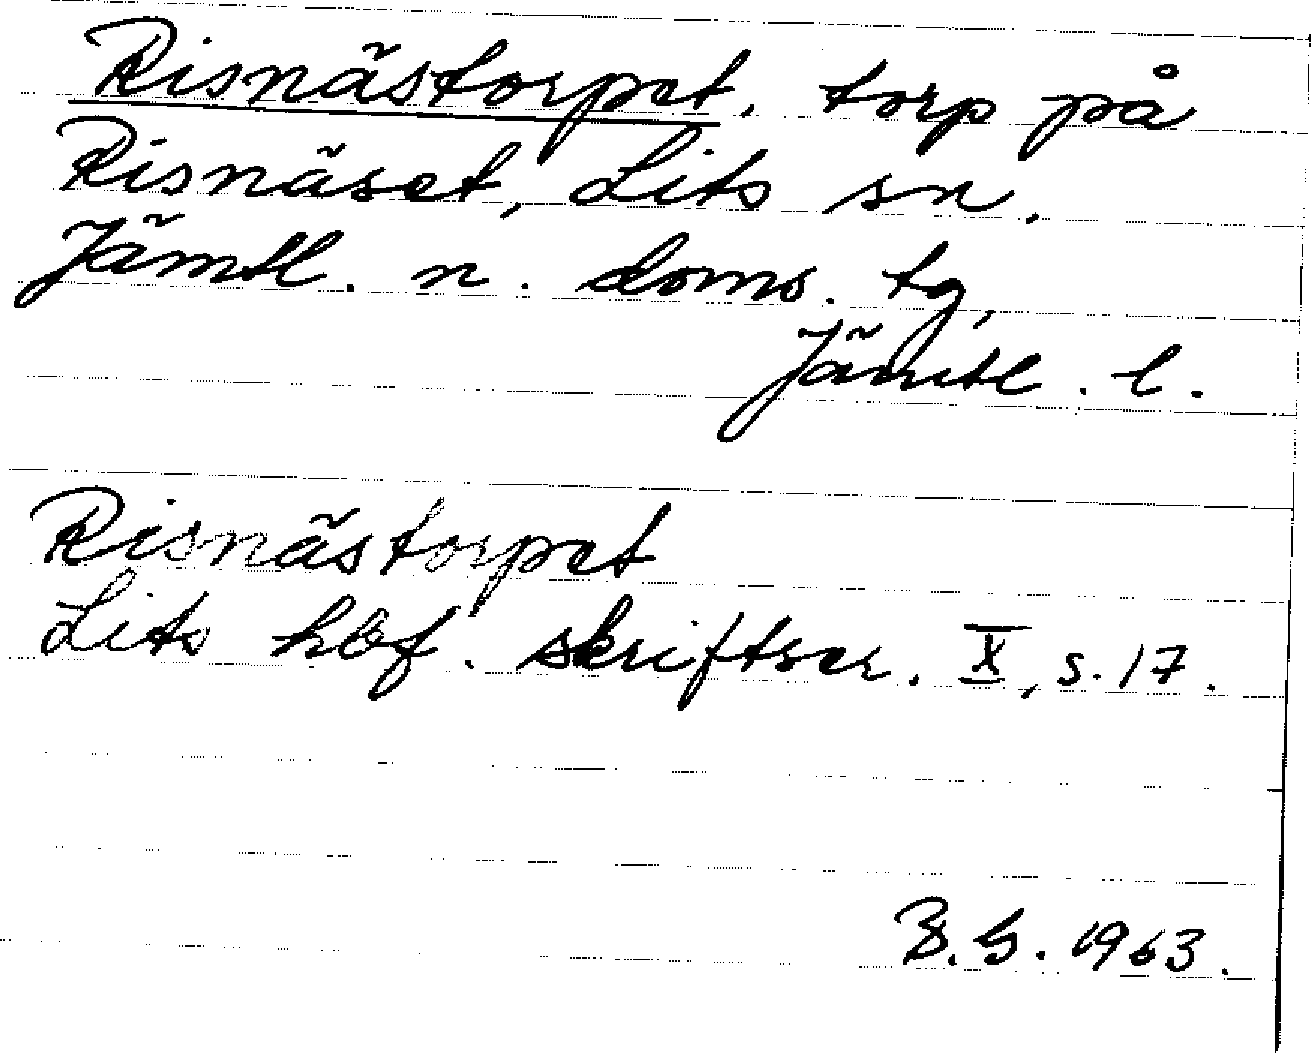 Risnästorpet, torp på
Risnäset, Lits sn,
Jämtl. n. doms. tg,
Jämtl. l.
Risnästorpet
Lits hbf. skriftser. X, s. 17.
B. G. 1963.